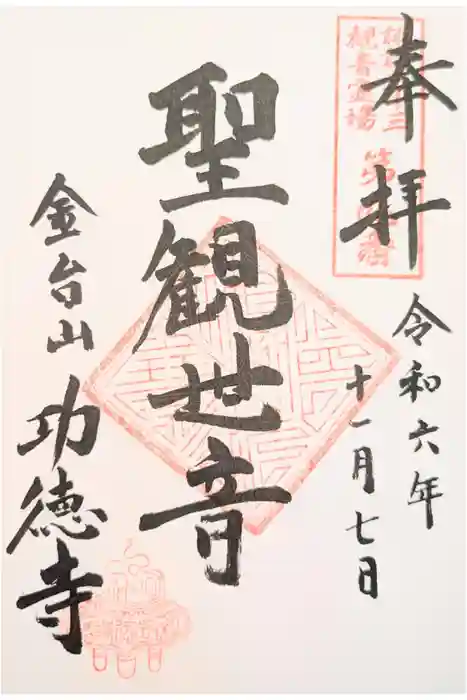 奉拝
令和六年
十一月七日
聖観世音
金台山
功徳寺
観音霊場